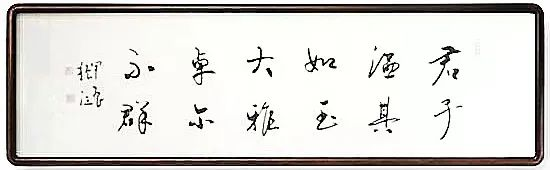 君子
温其
如玉
大雅
卓尔
不群
甲辰